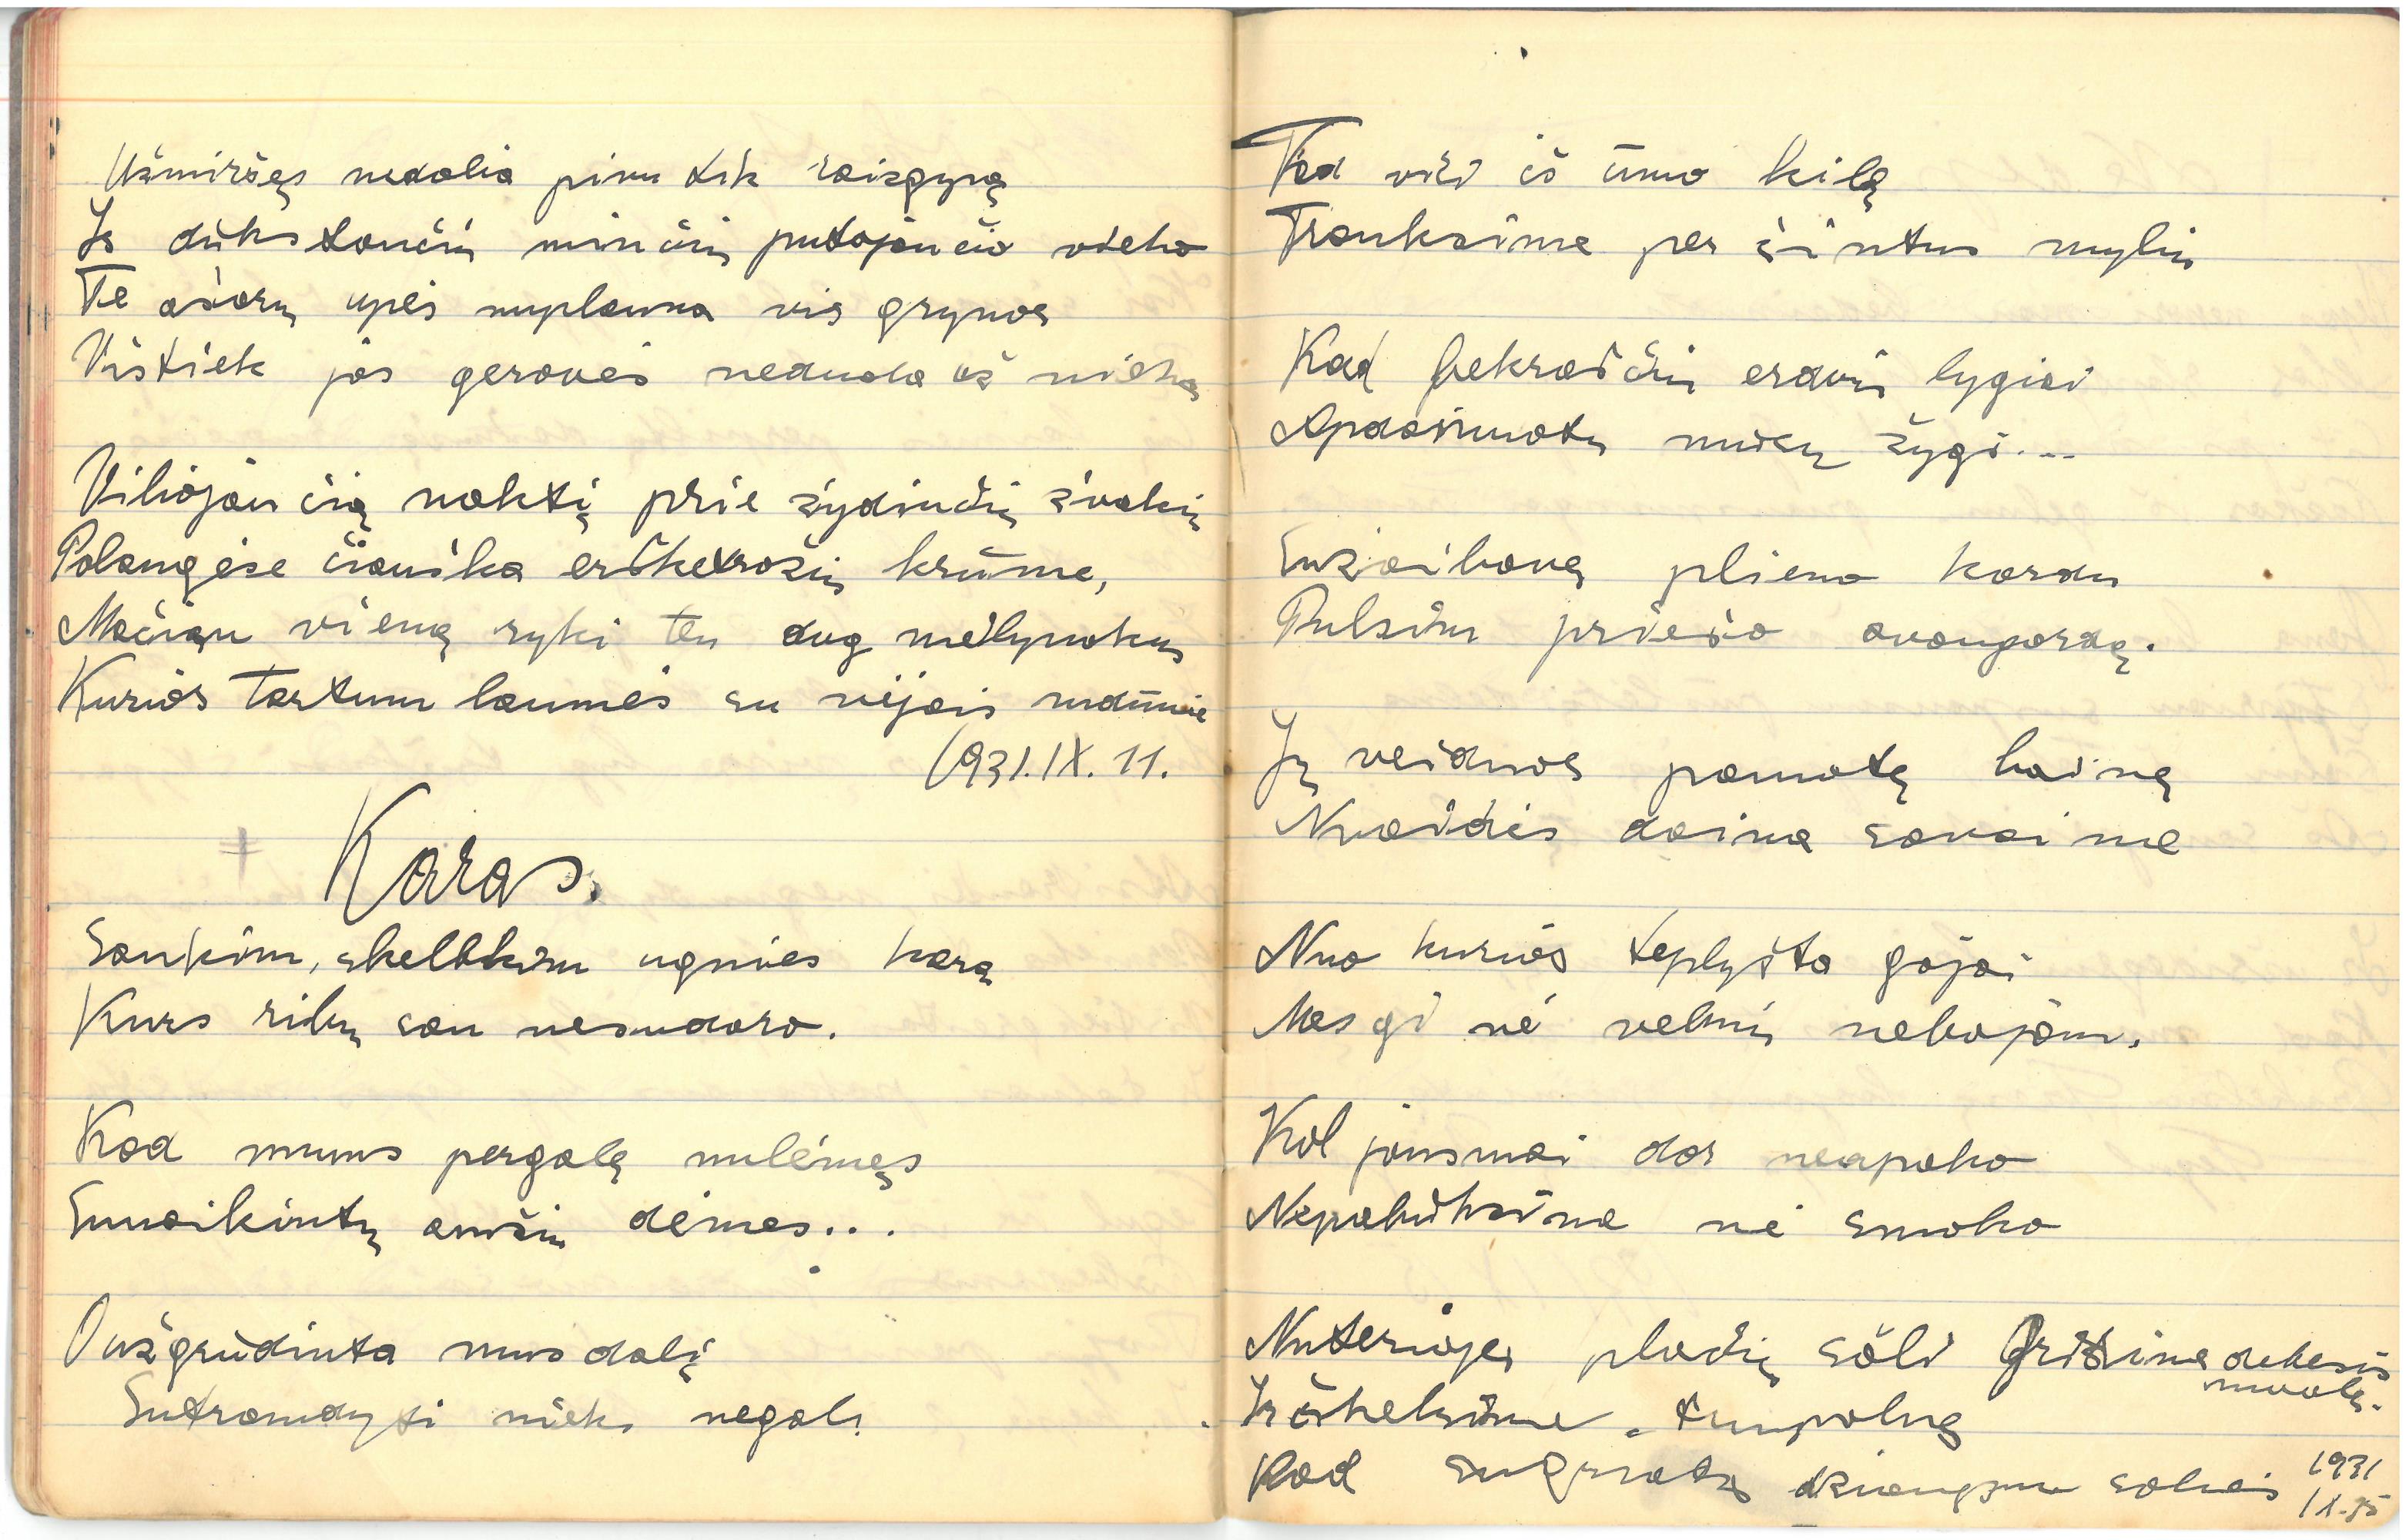 Užmiršęs nedalią pinu tik raizgyną
Iš tūkstančių minčių putojančio vieko
Te ašarų upės nuplauna vis grynos
Vistiek jos gerovės neduoda už nieką
Viliojančią naktį prie žydinčių žvakių
Palangėse čiauška erškėtrožių krūme,
Mačiau vieną rykį ten dug mėlynakių
Kurios tartum laumės su vėjais
1931.IX.11.
Karas.
Saukim, skelbkim ugnies karą
Kurs ribų sau nesudaro.
Kad mums pergalę nulėmęs
Sunaikintų amžių dėmes...
O užgrūdinta mus dalį
Sutramdyti nieks negali
Tad visi iš ūmo kilę
Trauksime per šimtus mylių
Kad bekraščių erdvių lygiai
Apdainuotų mūsų žygį...
Sužaibavę plieno kardu
Pulsim priešo avangardą.
Jų veiduos pamatę bainę
Nuaidės daina savaime
Nuo kurios teplyšta gojai
Mes gi nė velnių nebojam.
Kol jausmai dar neapako
Nepabūksime nė smako
Nuterioję plačią šalį Grįšime debesis
muolę.
Iškelsime tunpalvę
Kad sugriautų džiaugsmu salvės
1931
IX.15